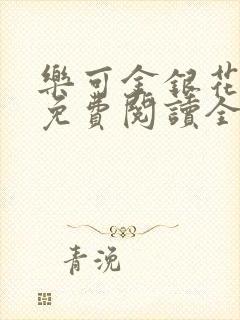 樂可金銀花
免費閱讀全
青浼